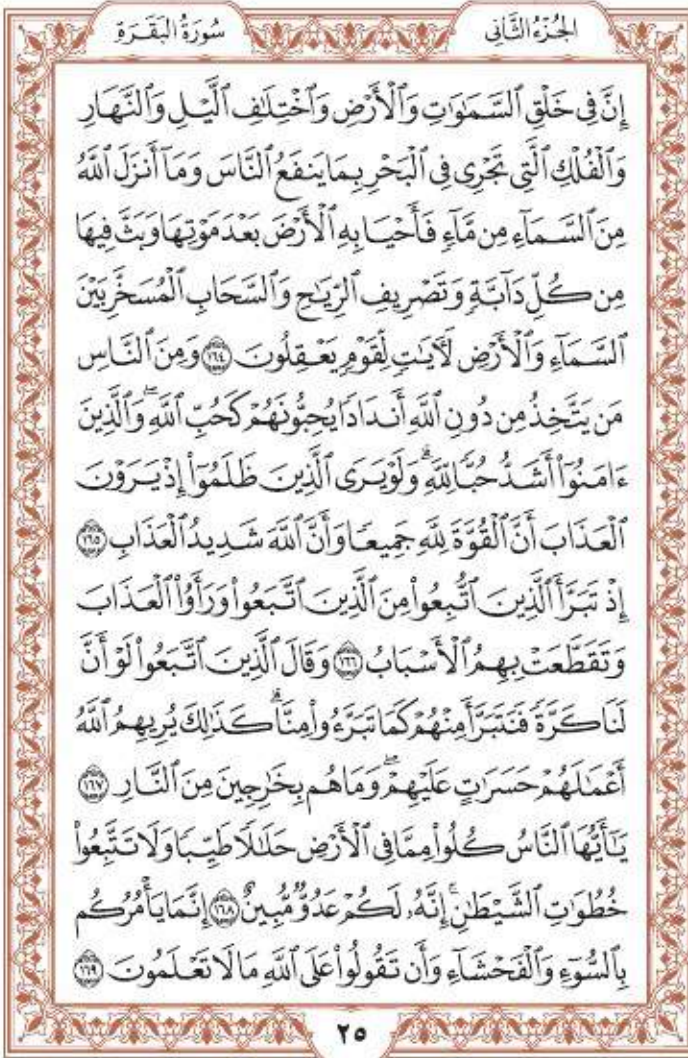 الجُزْءُ الثَّانِي
سُورَةُ البَقَرَةِ
إِنَّ فِي خَلْقِ ٱلسَّمَٰوَٰتِ وَٱلْأَرْضِ وَٱخْتِلَٰفِ ٱلَّيْلِ وَٱلنَّهَارِ
وَٱلْفُلْكِ ٱلَّتِي تَجْرِي فِي ٱلْبَحْرِ بِمَا يَنفَعُ ٱلنَّاسَ وَمَآ أَنزَلَ ٱللَّهُ
مِنَ ٱلسَّمَآءِ مِن مَّآءٍ فَأَحْيَا بِهِ ٱلْأَرْضَ بَعْدَ مَوْتِهَا وَبَثَّ فِيهَا
مِن كُلِّ دَآبَّةٍ وَتَصْرِيفِ ٱلرِّيَٰحِ وَٱلسَّحَابِ ٱلْمُسَخَّرِ بَيْنَ
ٱلسَّمَآءِ وَٱلْأَرْضِ لَأٓيَٰتٍ لِّقَوْمٍ يَعْقِلُونَ ١٦٤ وَمِنَ ٱلنَّاسِ
مَن يَتَّخِذُ مِن دُونِ ٱللَّهِ أَندَادًا يُحِبُّونَهُمْ كَحُبِّ ٱللَّهِۖ وَٱلَّذِينَ
ءَامَنُوٓا۟ أَشَدُّ حُبًّا لِّلَّهِۗ وَلَوْ يَرَى ٱلَّذِينَ ظَلَمُوٓا۟ إِذْ يَرَوْنَ
ٱلْعَذَابَ أَنَّ ٱلْقُوَّةَ لِلَّهِ جَمِيعًا وَأَنَّ ٱللَّهَ شَدِيدُ ٱلْعَذَابِ ١٦٥
إِذْ تَبَرَّأَ ٱلَّذِينَ ٱتُّبِعُوا۟ مِنَ ٱلَّذِينَ ٱتَّبَعُوا۟ وَرَأَوُا۟ ٱلْعَذَابَ
وَتَقَطَّعَتْ بِهِمُ ٱلْأَسْبَابُ ١٦٦ وَقَالَ ٱلَّذِينَ ٱتَّبَعُوا۟ لَوْ أَنَّ
لَنَا كَرَّةً فَنَتَبَرَّأَ مِنْهُمْ كَمَا تَبَرَّءُوا۟ مِنَّاۗ كَذَٰلِكَ يُرِيهِمُ ٱللَّهُ
أَعْمَٰلَهُمْ حَسَرَٰتٍ عَلَيْهِمْۖ وَمَا هُم بِخَٰرِجِينَ مِنَ ٱلنَّارِ ١٦٧
يَٰٓأَيُّهَا ٱلنَّاسُ كُلُوا۟ مِمَّا فِي ٱلْأَرْضِ حَلَٰلًا طَيِّبًا وَلَا تَتَّبِعُوا۟
خُطُوَٰتِ ٱلشَّيْطَٰنِۚ إِنَّهُۥ لَكُمْ عَدُوٌّ مُّبِينٌ ١٦٨ إِنَّمَا يَأْمُرُكُم
بِٱلسُّوٓءِ وَٱلْفَحْشَآءِ وَأَن تَقُولُوا۟ عَلَى ٱللَّهِ مَا لَا تَعْلَمُونَ ١٦٩
٢٥